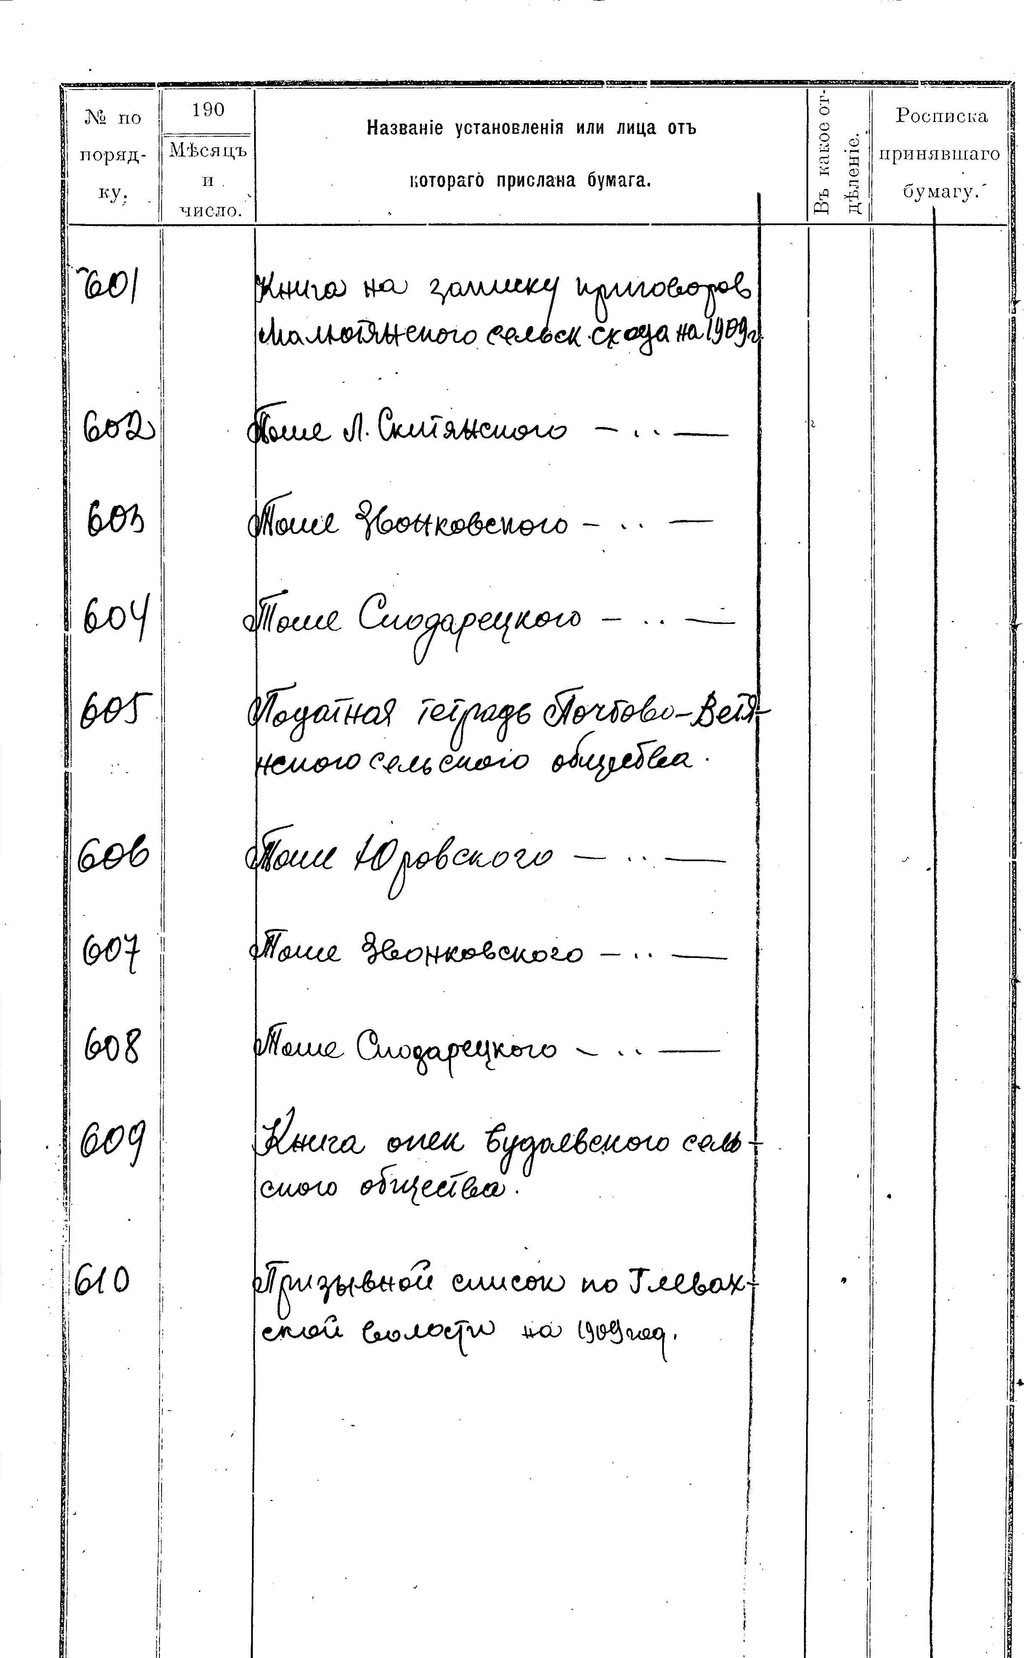 № по поряд-ку.
190
Мѣсяцъ и число.
Названіе установленія или лица отъ
котораго прислана бумага.
Въ какое от-дѣленіе.
Росписка принявшаго бумагу.
601 Книга на записку приговоров
Малютянского сельск. схода на 1909 г
602 Тоже Л. Скитянского — . . —
603 Тоже Звонковского — . . —
604 Тоже Сподарецкого — . . —
605 Податная тетрадь Почтово-Ветя-
нского сельского общества.
606 Тоже Юровского — . . —
607 Тоже Звонковского — . . —
608 Тоже Сподарецкого — . . —
609 Книга опек Будаевского сель-
ского общества.
610 Призывной список по Глевах-
ской волости на 1909 год.